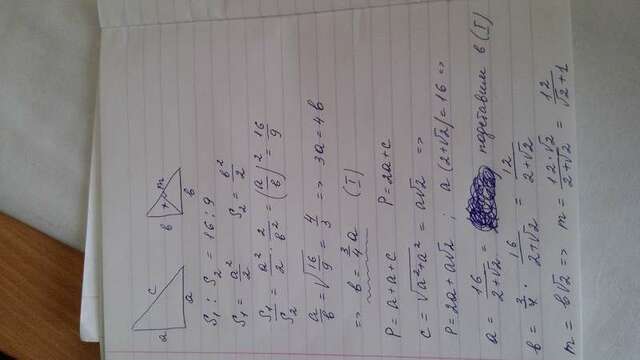 a c a
в m в
S₁ : S₂ = 16 : 9
S₁ = a²/2 S₂ = в²/2
S₁/S₂ = a²/2 · 2/в² = (a/в)² = 16/9
a/в = √(16/9) = 4/3 => 3a = 4в
=> в = 3/4 a (I)
P = a + a + c P = 2a + c
c = √(a² + a²) = a√2 =>
P = 2a + a√2 ; a(2+√2) = 16 =>
a = 16/(2+√2) = подставим в (I)
в = 3/4 · 16/(2+√2) = 12/(2+√2)
m = в√2 => m = 12·√2/(2+√2) = 12/(√2+1)